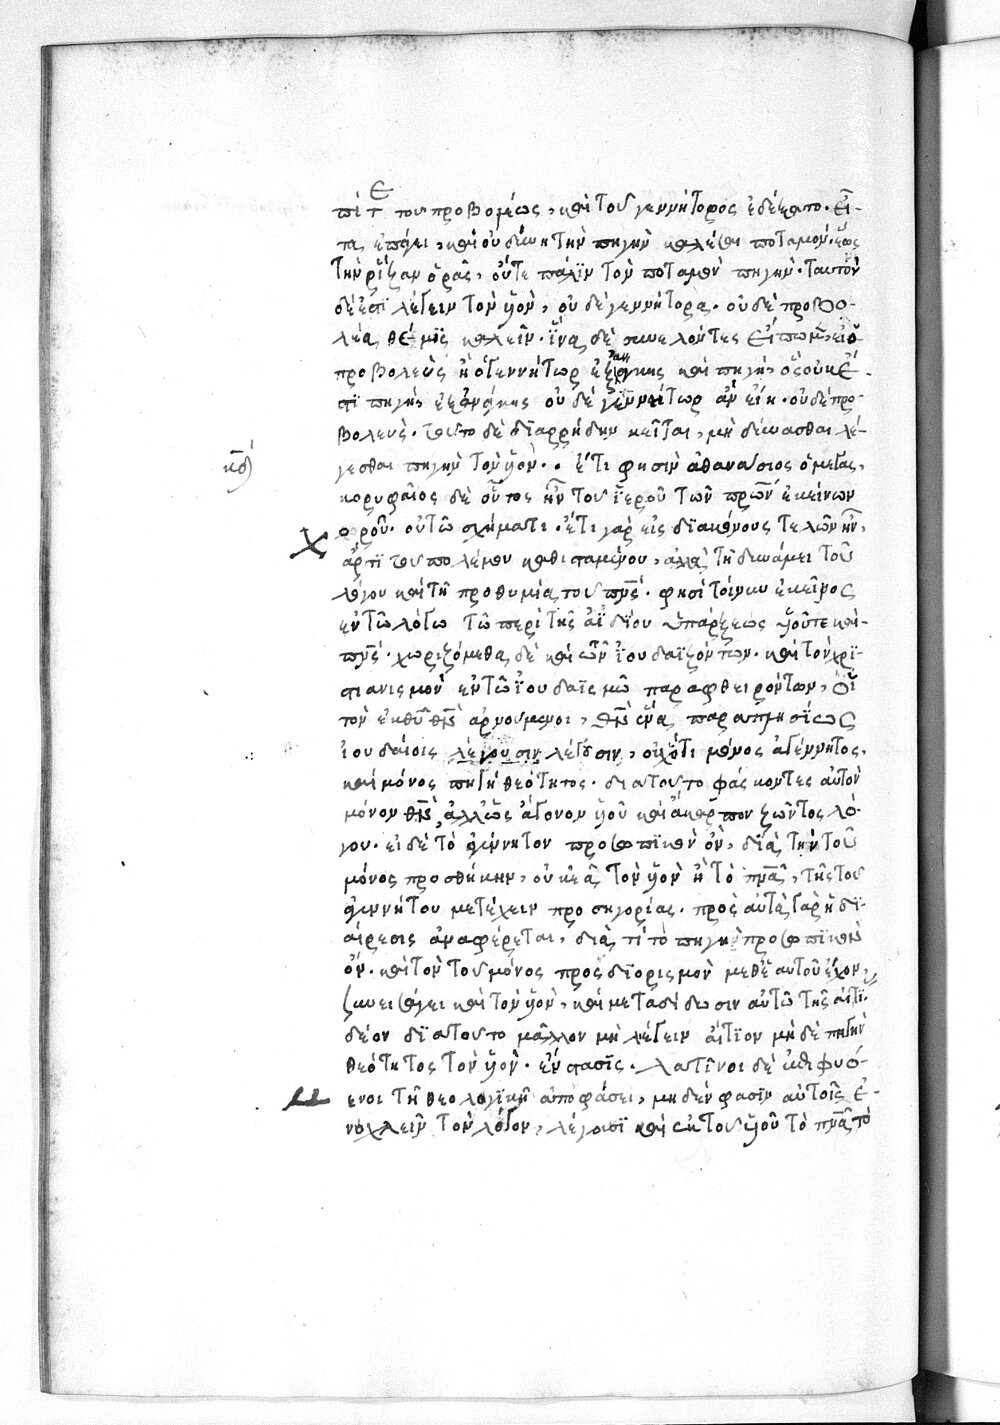 πὶ τ του προβολέως, καὶ τοῦ γεννήτορος ἐδέξατο. εἶ-
τα ἐπάγει, καὶ οὐ δήπου τὴν πηγὴν καλέσαι ποταμόν. ἕως
τὴν ῥίζαν ὁρᾶς, οὔτε πάλιν τὸν ποταμὸν πηγήν. ταυτὸν
δέ ἐστι λέγειν τὸν ὗον, οὐ δὲ γεννήτορα. οὐδὲ προβο-
λέα θέμις καλεῖν. ἵνα δὲ συνελόντες εἴπωμεν, εἰ ὁ
προβολεὺς ἢ ὁ γεννήτωρ ἐξανάγκης καὶ πηγή, ὃς οὐκ ἔ-
στι πηγή, ἐξανάγκης οὐδὲ γεννήτωρ ἂν εἴη. οὐδὲ προ-
βολεύς. τοῦτο δὲ διαρρήδην κεῖται, μὴ δύνασθαι λέ-
κδ
γεσθαι πηγὴν τὸν ὗον. ἔτι φησὶν ἀθανάσιος ὁ μέγας,
κορυφαῖος δὲ οὗτος ἦν τοῦ ἱεροῦ τῶν πρων ἐκείνων
χοροῦ. οὔπω σχήματι. ἔτι γὰρ εἰς διακόνους τελῶν ἦν,
ἄρτι τοῦ πολέμου καθισταμένου, ἀλλὰ τῆ δυνάμει τοῦ
λόγου καὶ τῆ προθυμία τοῦ πνς. φησὶ τοίνυν ἐκεῖνος
ἐν τῶ λόγω τῶ περὶ τῆς ἀϊδίου ὑπάρξεως ὑοῦ τε καὶ
πνς. χωριζόμεθα δὲ καὶ τῶν ἰουδαϊζόντων. καὶ τὸν χρι-
στιανισμὸν ἐν τῶ ἰουδαϊσμῶ παραφθειρόντων, οἳ
τὸν ἐκ θυ θν ἀρνούμενοι, θν ἕνα παραπλησίως
ἰουδαίοις λέγουσιν λέγουσιν, οὐχ ὅτι μόνος ἀγέννητος,
καὶ μόνος πηγὴ θεότητος. διὰ τοῦτο φάσκοντες αὐτὸν
μόνον θν, ἀλλ' ὡς ἄγονον ὑοῦ καὶ ἄκαρπον ζῶντος λό-
γου. εἰ δὲ τὸ ἀγέννητον προσωπικὸν ὂν, διὰ τὴν τοῦ
μόνος προσθήκην, οὐκ ἐᾶ τὸν ὗον ἢ τὸ πνα, τῆς τοῦ
ἀγεννήτου μετέχειν προσηγορίας. πρὸς αὐτὰ γὰρ ἡ δι-
αίρεσις ἀναφέρεται, διὰ τί τὸ πηγὴ προσωπικὸν
ὂν. καὶ τὸν τοῦ μόνος προσδιορισμὸν μεθ' ἑαυτοῦ ἔχον,
συνεισάγει καὶ τὸν ὗον, καὶ μεταδίδωσιν αὐτῶ τῆς αἰτί.
δέον διὰ τοῦτο μᾶλλον μὴ λέγειν αἴτιον μηδὲ πηγὴν
θεότητος τὸν ὗον. ἔνστασις. λατῖνοι δὲ
ενοι τῆ θεολογικῆ ἀποφάσει, μηδέν φασιν αὐτοῖς ἐ-
νοχλεῖν τὸν λόγον, λέγουσι καὶ ἐκ τοῦ ὑοῦ τὸ πνα τὸ